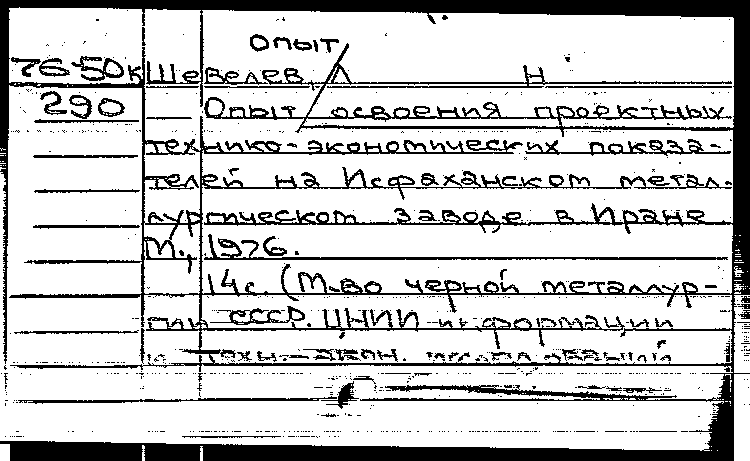 Опыт
76-50к Шевелев, Л Н
290 Опыт / освоения проектных
технико-экономических показа-
телей на Исфаханском метал-
лургическом заводе в Иране
М., 1976.
14с. (М-во черной металлур-
гии СССР. ЦНИИ информации
и техн.-экон. исследований